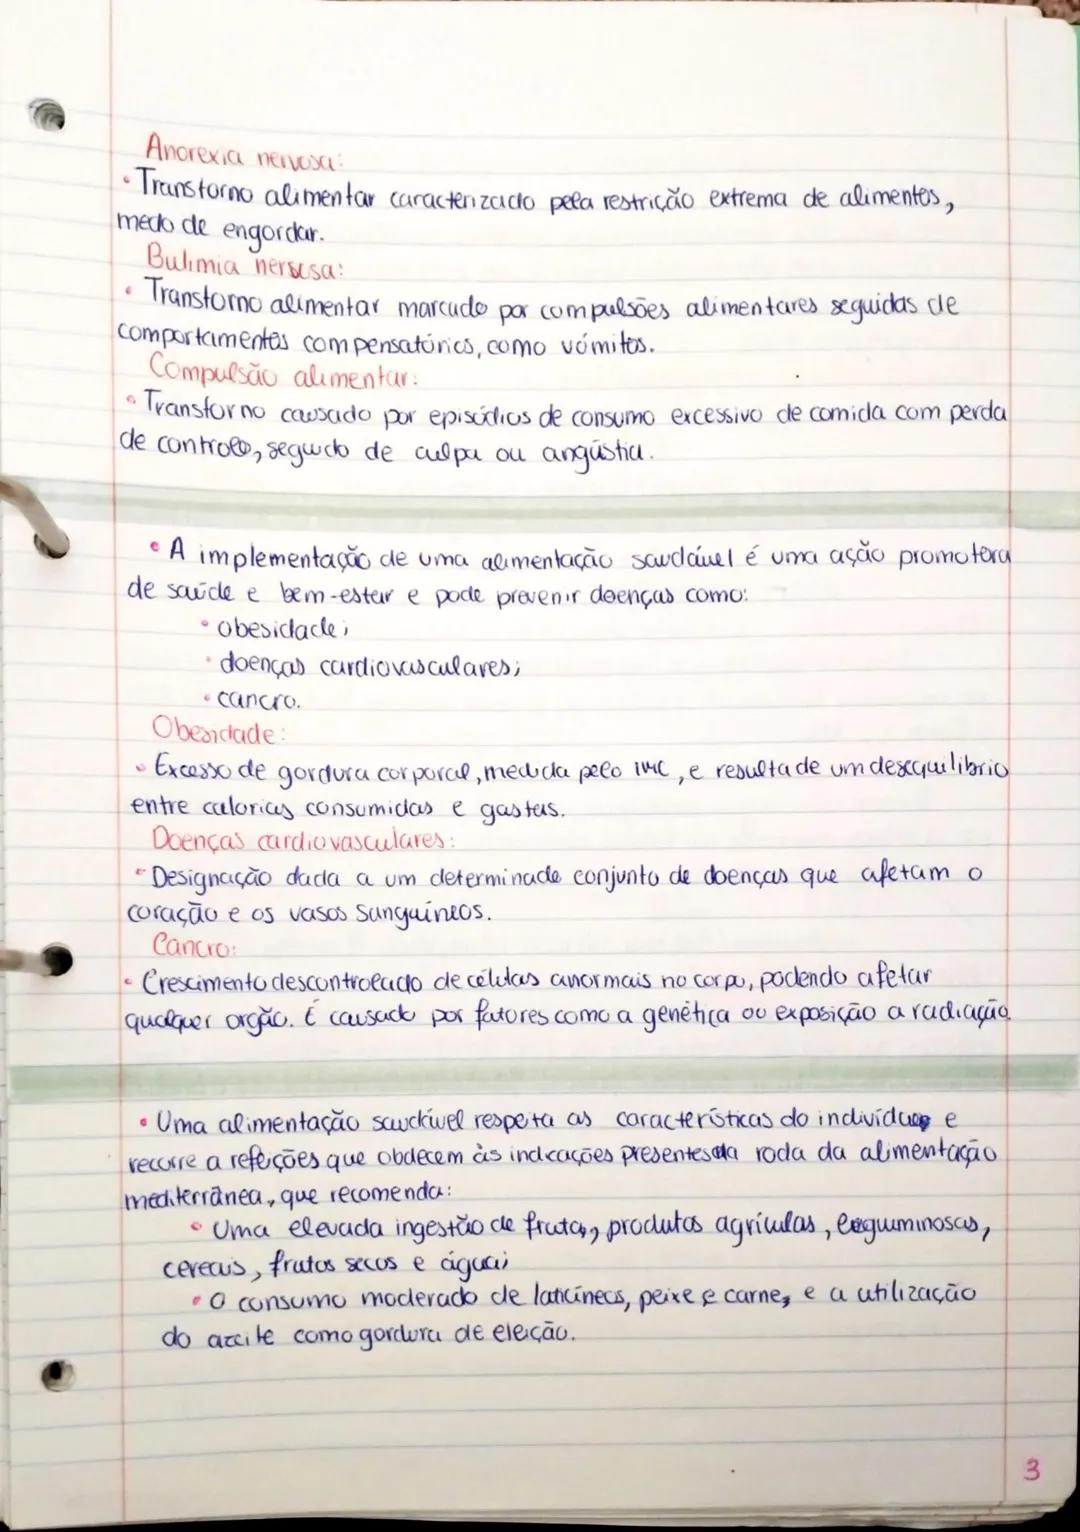 Anorexia nervosa:
• Transtorno alimentar caracterizado pela restrição extrema de alimentos,
medo de engordar.
Bulimia nervosa:
• Transtorno alimentar marcado por compulsões alimentares seguidas de
comportamentos compensatórios, como vómitos.
Compulsão alimentar:
• Transtorno causado por episódios de consumo excessivo de comida com perda
de controlo, seguido de culpa ou angústia.
• A implementação de uma alimentação saudável é uma ação promotora
de saúde e bem-estar e pode prevenir doenças como:
• obesidade;
• doenças cardiovasculares;
• cancro.
Obesidade:
• Excesso de gordura corporal, medida pelo IMC, e resulta de um desequilibrio
entre calorias consumidas e gastas.
Doenças cardiovasculares:
• Designação dada a um determinado conjunto de doenças que afetam o
coração e os vasos sanguíneos.
Cancro:
• Crescimento descontrolado de células anormais no corpo, podendo afetar
qualquer orgão. É causado por fatores como a genética ou exposição a radiação.
• Uma alimentação saudável respeita as características do indivíduo e
recorre a refeições que obdecem às indicações presentes da roda da alimentação
mediterrânea, que recomenda:
• Uma elevada ingestão de frutas, produtos agrículas, leguminosas,
cereais, frutos secos e água;
• O consumo moderado de laticíneos, peixe e carne, e a utilização
do azeite como gordura de eleição.
3